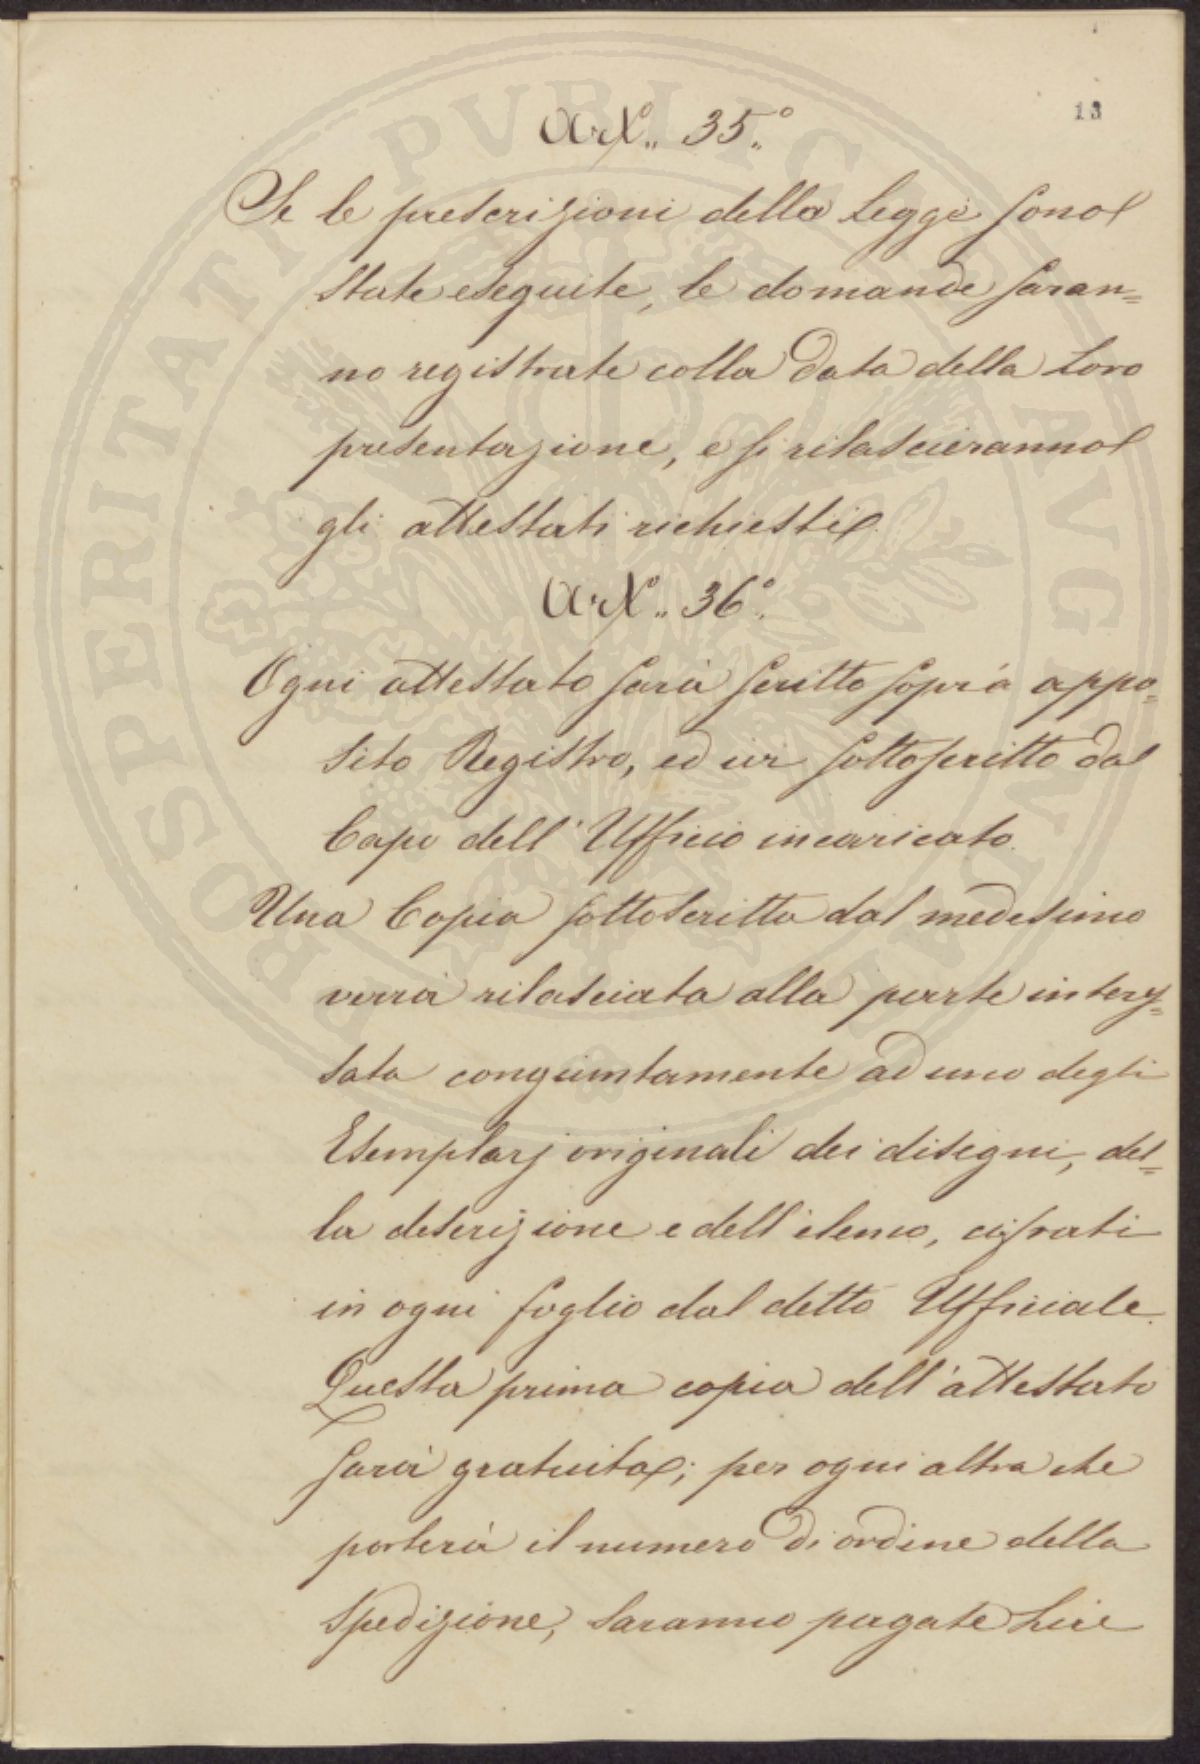 13
Art.° 35.°
Se le prescrizioni della Legge sono
state eseguite, le domande saran=
no registrate colla data della loro
presentazione, e si rilascieranno
gli attestati richiesti.
Art.° 36.°
Ogni attestato sarà scritto sopra appo=
sito Registro, ed ivi sottoscritto dal
Capo dell'Ufficio incaricato.
Una Copia sottoscritta dal medesimo
verrà rilasciata alla parte interes=
sata congiuntamente ad uno degli
Esemplarj originali dei disegni, del=
la descrizione e dell'elenco, cifrati
in ogni foglio dal detto Uffiziale.
Questa prima copia dell'attestato
sarà gratuita; per ogni altra che
porterà il numero di ordine della
spedizione, saranno pagate Lire
PROSPERITATI PVBLICAE AVGENDAE